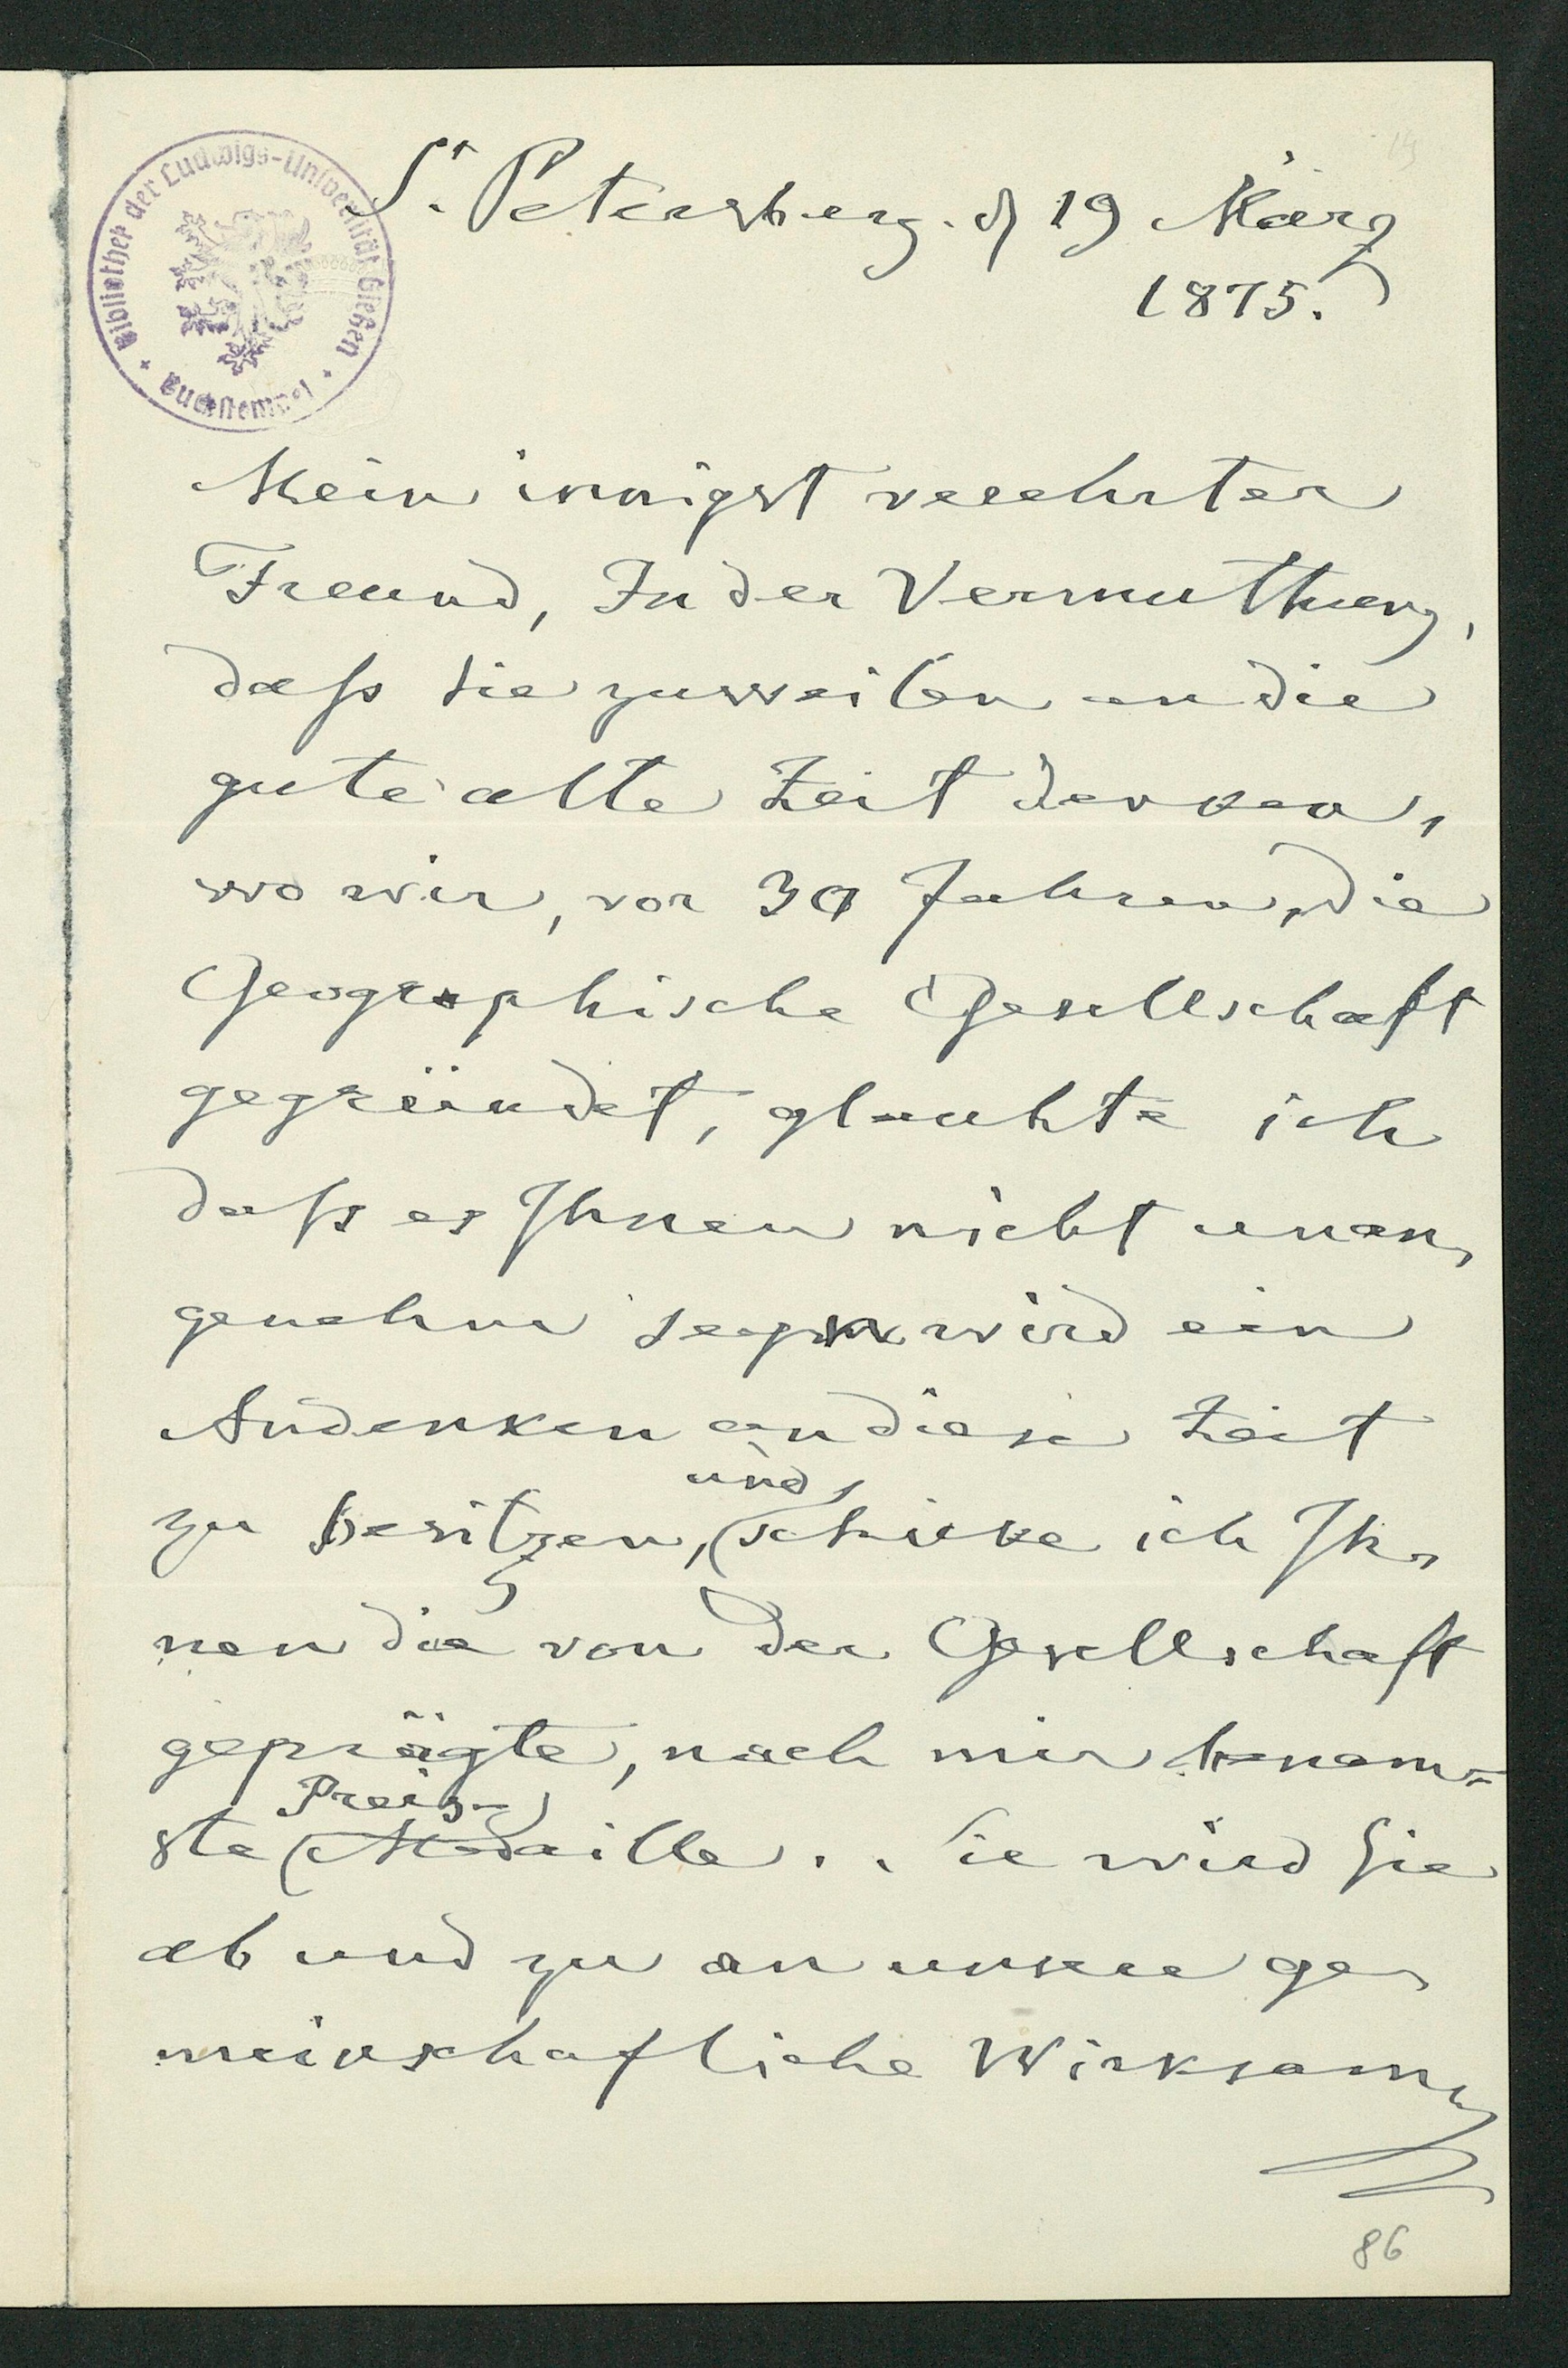 Bibliothek der Ludwigs-Universität Gießen
Buchstempel
St. Petersberg. d 19 März
1875.
Mein innigst verehrter
Freund, In der Vermuthung,
daß Sie zuweilen an die
gute alte Zeit denken,
wo wir, vor 30 Jahren, die
Geographische Gesellschaft
gegründet, glaubte ich
daß es Ihnen nicht unan,
genehm seyn wird ein
Andenken an diese Zeit
und
zu besitzen, schicke ich Ih,
nen die von der Gesellschaft
geprägte, nach mir benam=
Preis-
ste Medaille.. Sie wird Sie
ab und zu an unsere ge,
meinschafliche Wirksam,
86